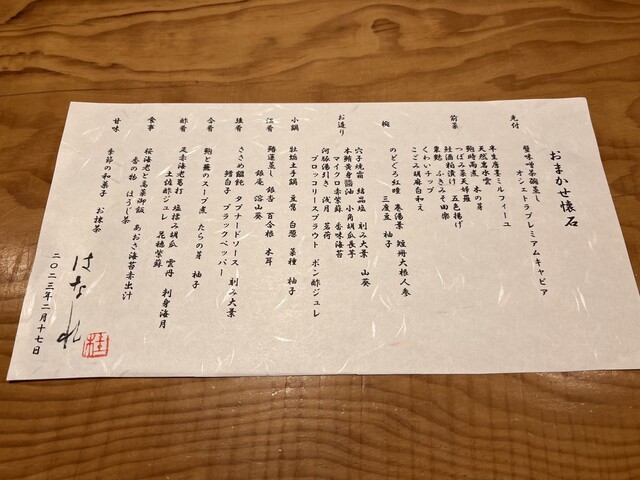 おまかせ懐石
先付
蟹味噌茶碗蒸し
オシェトラプレミアムキャビア
前菜
半生唐墨ミルフィーユ
天然岩水雲
鮑時雨煮 木の芽
つぼみ菜天婦羅 五色揚げ
鮭酒粕漬け
粟麩 ふきみそ田楽
くわいチップ
こごみ胡麻白和え
椀
のどぐろ紅種 巻湯葉 短冊大根人参
三度豆 柚子
お造り
穴子焼霜 結晶塩 刻み大葉 山葵
本鮪黄身醤油 小角胡瓜長芋
マイクロ赤紫蘇 香味海苔
河豚湯引き 浅月 茗荷
ブロッコリースプラウト ポン酢ジュレ
小鍋
牡蠣土手鍋 豆腐 白葱 菜種 柚子
温肴
鰆蓮蒸し 銀杏 百合根 木耳
銀庵 溶山葵
強肴
ささめ饂飩 タプナードソース 刻み大葉
鱈白子 ブラックペッパー
合肴
鮑と蕪のスープ煮 たらの芽 柚子
酢肴
足赤海老葛打 塩揉み胡瓜 雲丹 刺身海月
土佐酢ジュレ 花穂紫蘇
食事
桜海老と高菜御飯 あおさ海苔赤出汁
香の物 ほうじ茶
甘味
季節の和菓子 お抹茶
はなれ
桂
二〇二三年二月十七日